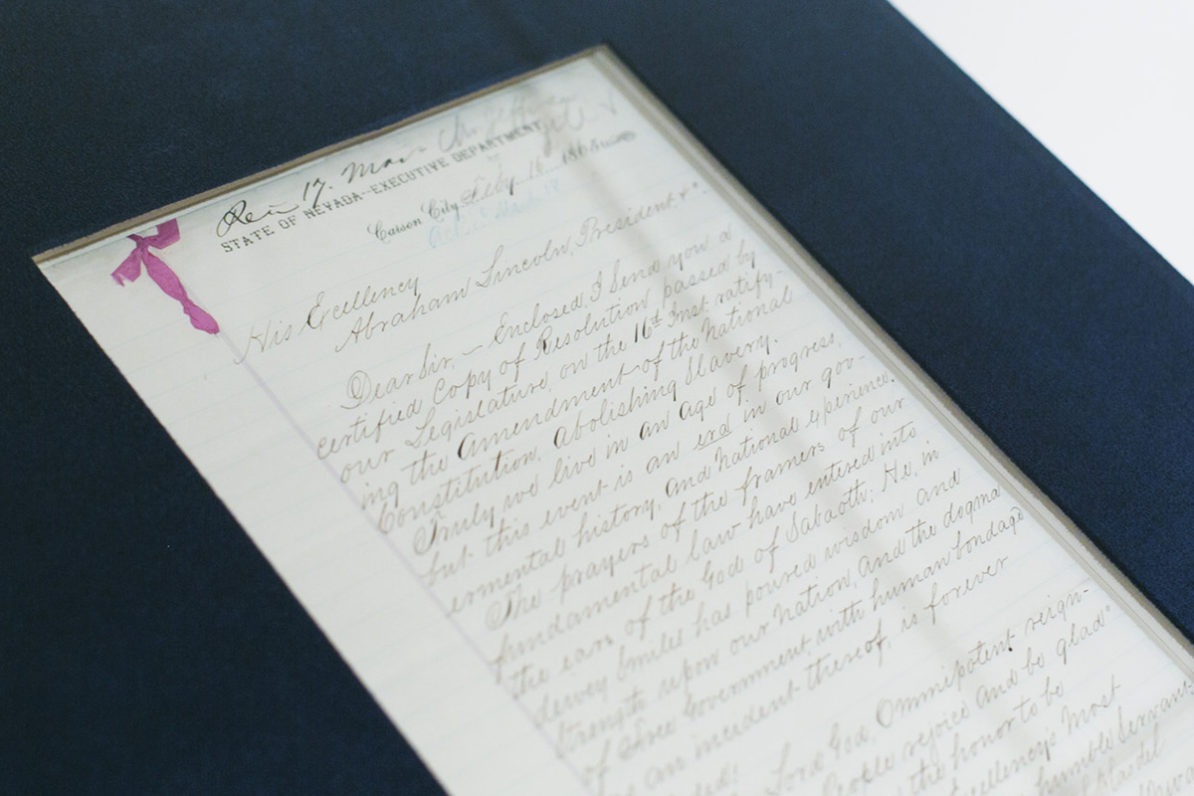 Rec 17. Mar
STATE OF NEVADA--EXECUTIVE DEPARTMENT,
Carson City, Feby 16 1865
His Excellency
Abraham Lincoln, President &c.
Dear Sir, — Enclosed, I Send you a
certified Copy of Resolution, passed by
our Legislature, on the 16th Inst ratify-
ing the Amendment of the National
Constitution, Abolishing Slavery.
Truly, we live in an Age of progress,
but this event is an era in our gov-
ermental history, and national experience.
The prayers of the framers of our
fundamental law have entered into
the ears of the God of Sabaoth; He, in
dewey Smiles has poured wisdom and
Strength upon our Nation, and the dogma
of Free Government, with human bondage
an incident thereof, is forever
Lord God, Omnipotent reign-
People rejoice and be glad"
the honor to be
Excellency's Most
humble Servant